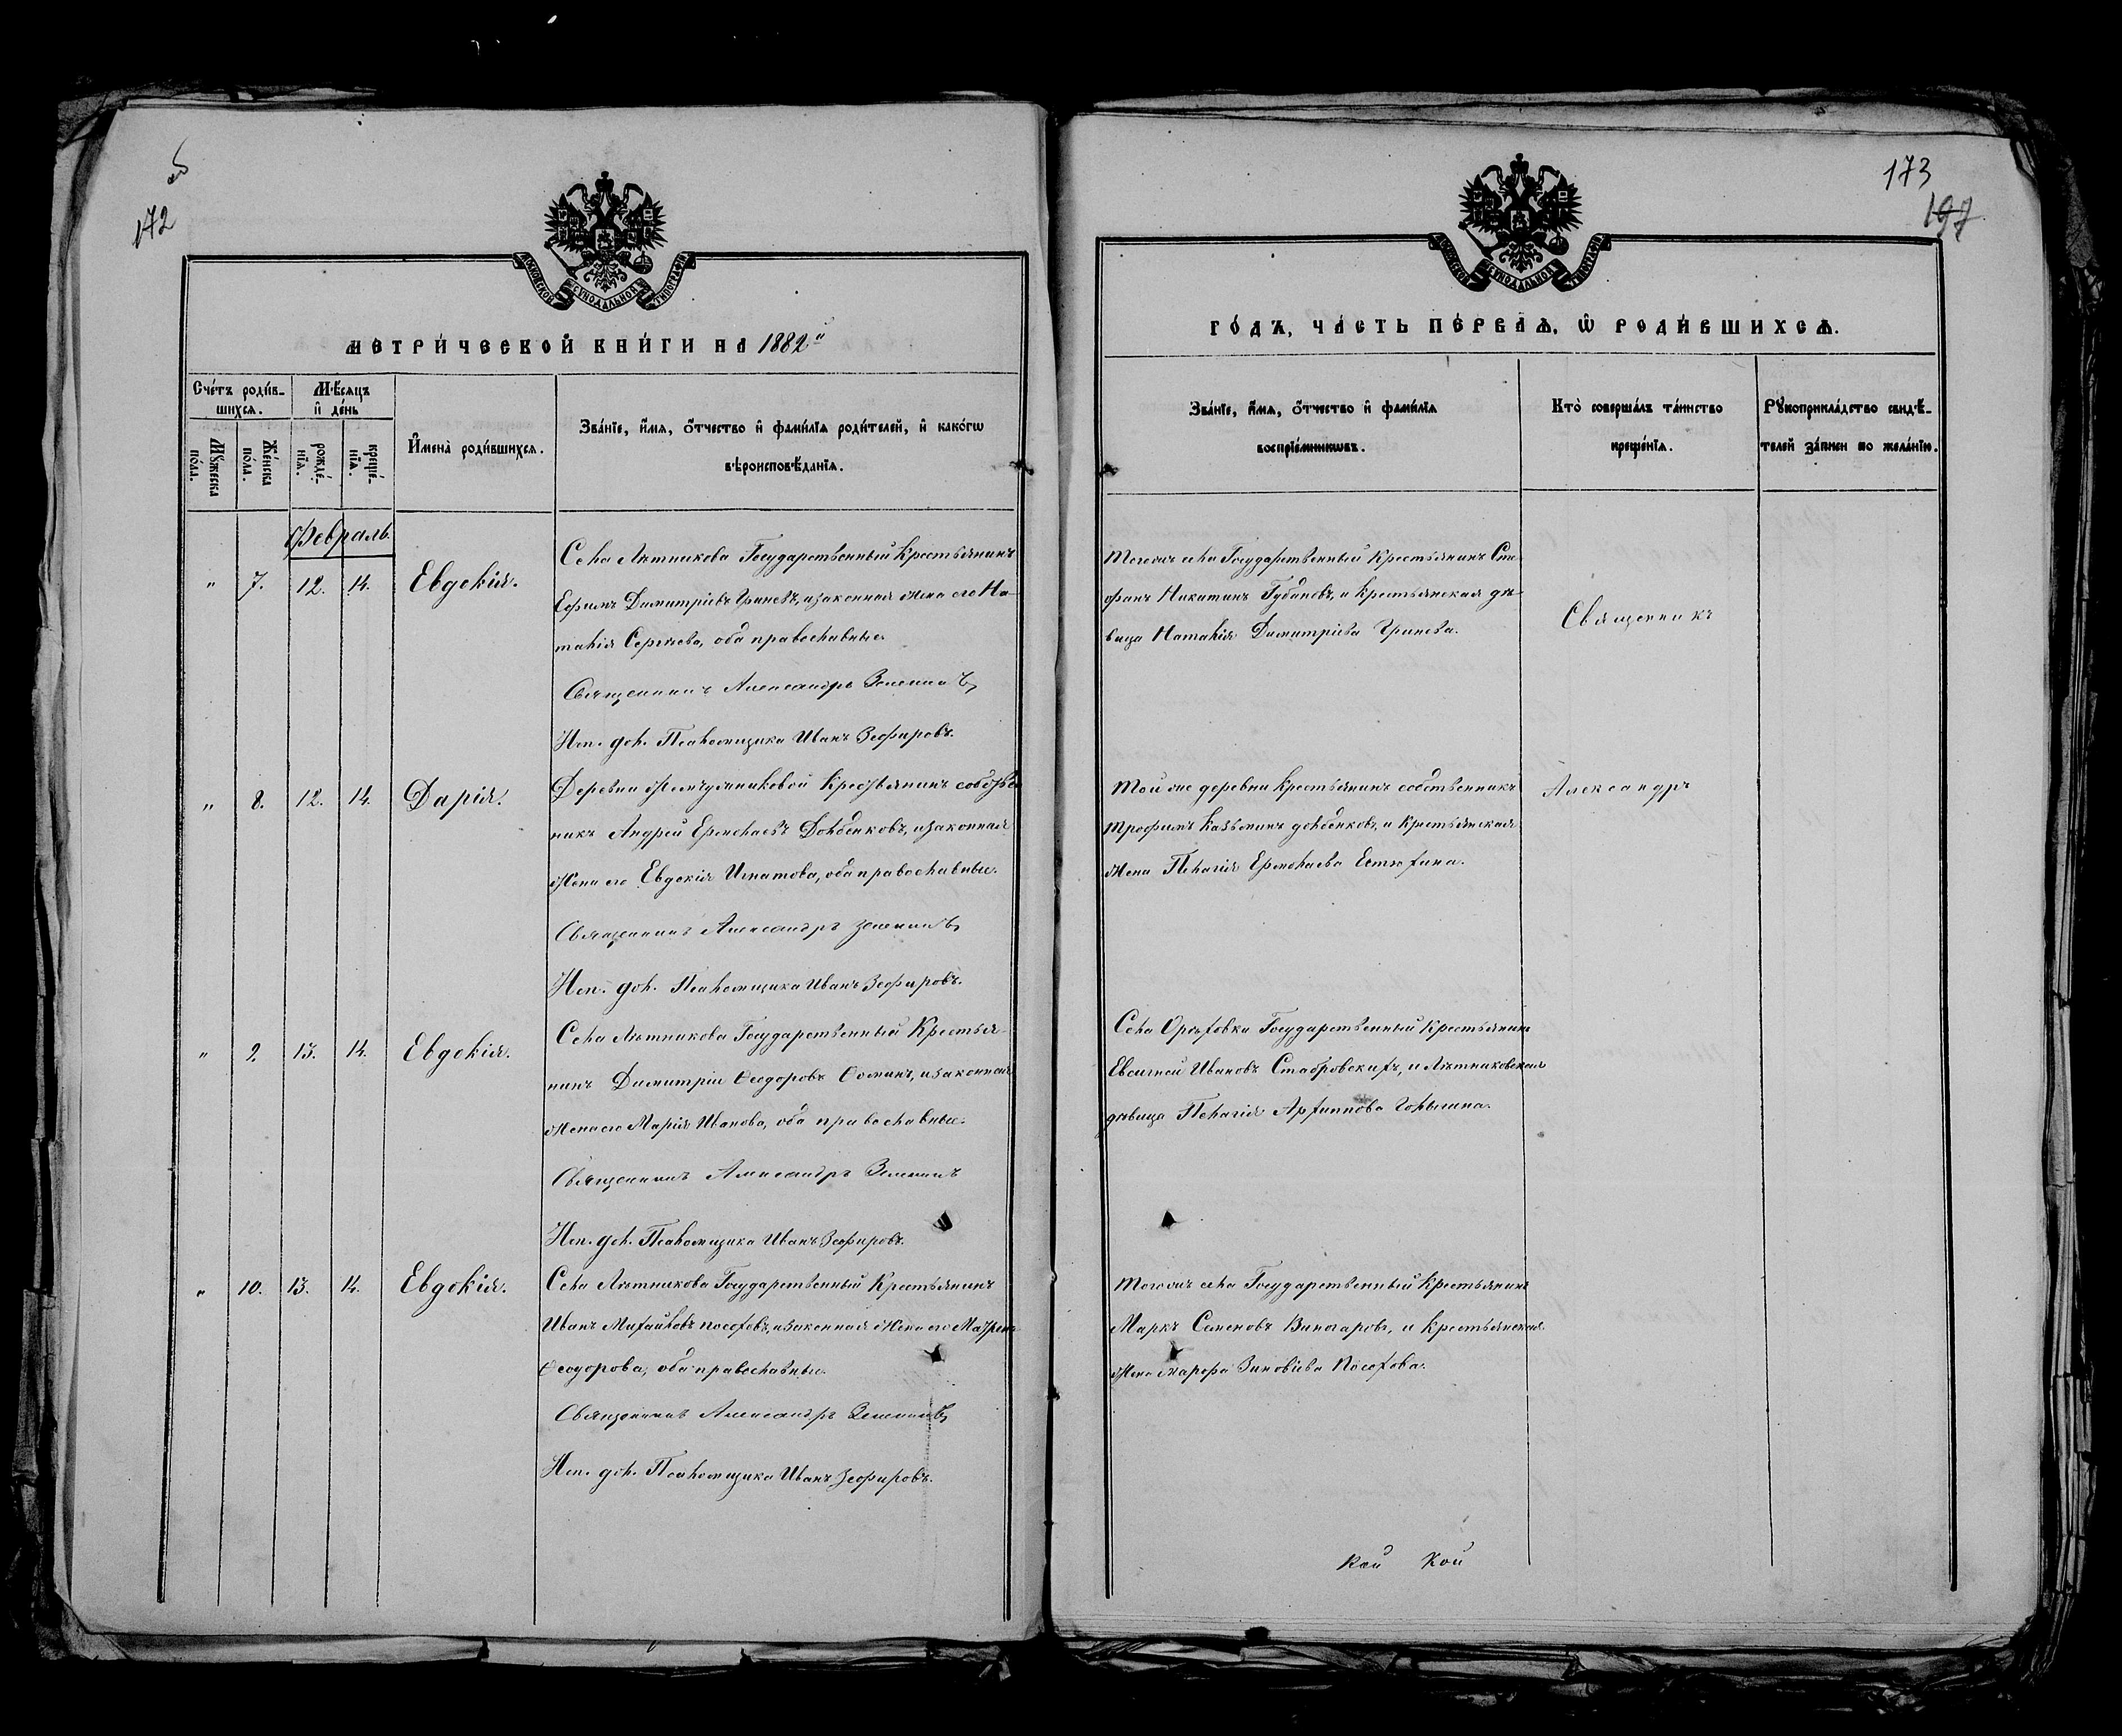 172
МОСКОВСКОЙ СѴНОДАЛЬНОЙ ТИПОГРАФІИ
МЕТРИ́ЧЕСКОЙ КНИ́ГИ НА 1882й
Сче́тъ роди́в-
шихсѧ.
Мѣ́сѧцъ
и҆ де́нь
Мꙋ́жеска
по́ла.
Же́нска
по́ла.
рожде́-
нїѧ.
креще́-
нїѧ.
И҆мена̀ роди́вшихсѧ.
Зва́нїе, и҆́мѧ, ѻ҆́тчество и҆ фамі́лїѧ роди́телей, и҆ како́гѡ
вѣроисповѣ́данїѧ.
Февраль.
" 7. 12. 14. Евдокія.
Села Лѣтникова Государственный Крестьянинъ
Ефимъ Димитріевъ Гриневъ, и законная жена его На-
талія Сергѣева, оба православные.
Священникъ Александръ
Исп. дол. Псаломщика Иванъ Зефировъ.
" 8. 12. 14. Дарія.
Деревни Крестьянинъ собствен
никъ Андрей Ермолаевъ Долбенковъ, и законная
жена его Евдокія Игнатова, оба православные.
Священникъ Александръ
Исп. дол. Псаломщика Иванъ Зефировъ.
" 9. 13. 14. Евдокія.
Села Лѣтникова Государственный Крестья-
нинъ Димитрій Ѳеодоровъ Ѳоминъ, и законная
жена его Марія Иванова, оба православные.
Священникъ Александръ
Исп. дол. Псаломщика Иванъ Зефировъ.
" 10. 13. 14. Евдокія.
Села Лѣтникова Государственный Крестьянинъ
Иванъ Михайловъ Посоховъ, и законная жена его Матрена
Ѳеодорова, оба православные.
Священникъ Александръ
Исп. дол. Псаломщика Иванъ Зефировъ.
173
197.
МОСКОВСКОЙ СѴНОДАЛЬНОЙ ТИПОГРАФІИ
ГО́ДЪ, ЧА́СТЬ ПЕ́РВАѦ, Ѡ҆ РОДИ́ВШИХСѦ.
Зва́нїе, и҆́мѧ, ѻ҆́тчество и҆ фамі́лїѧ
воспрїе́мникѡвъ.
Кто̀ соверша́лъ та́инство
креще́нїѧ.
Рꙋкоприкла́дство свидѣ́-
телей за́писи по жела́нїю.
Того же села Государственный Крестьянинъ Сте-
фанъ Никитинъ Губановъ, и крестьянская дѣ-
вица Наталія Димитріева Гринева.
Священникъ
Той же деревни крестьянинъ собственникъ
Трофимъ Казьминъ Долбенковъ, и крестьянская
жена Пелагія Ермолаева Естюхина.
Александръ
Села Орѣховки Государственный Крестьянинъ
Евсигней Ивановъ Стабровскихъ, и Лѣтниковская
дѣвица Пелагія Архиппова Голыгина.
Того же села Государственный крестьянинъ
Маркъ Семеновъ Винограровъ, и крестьянская
жена Марфа Зиновіева Посохова.
кой кой